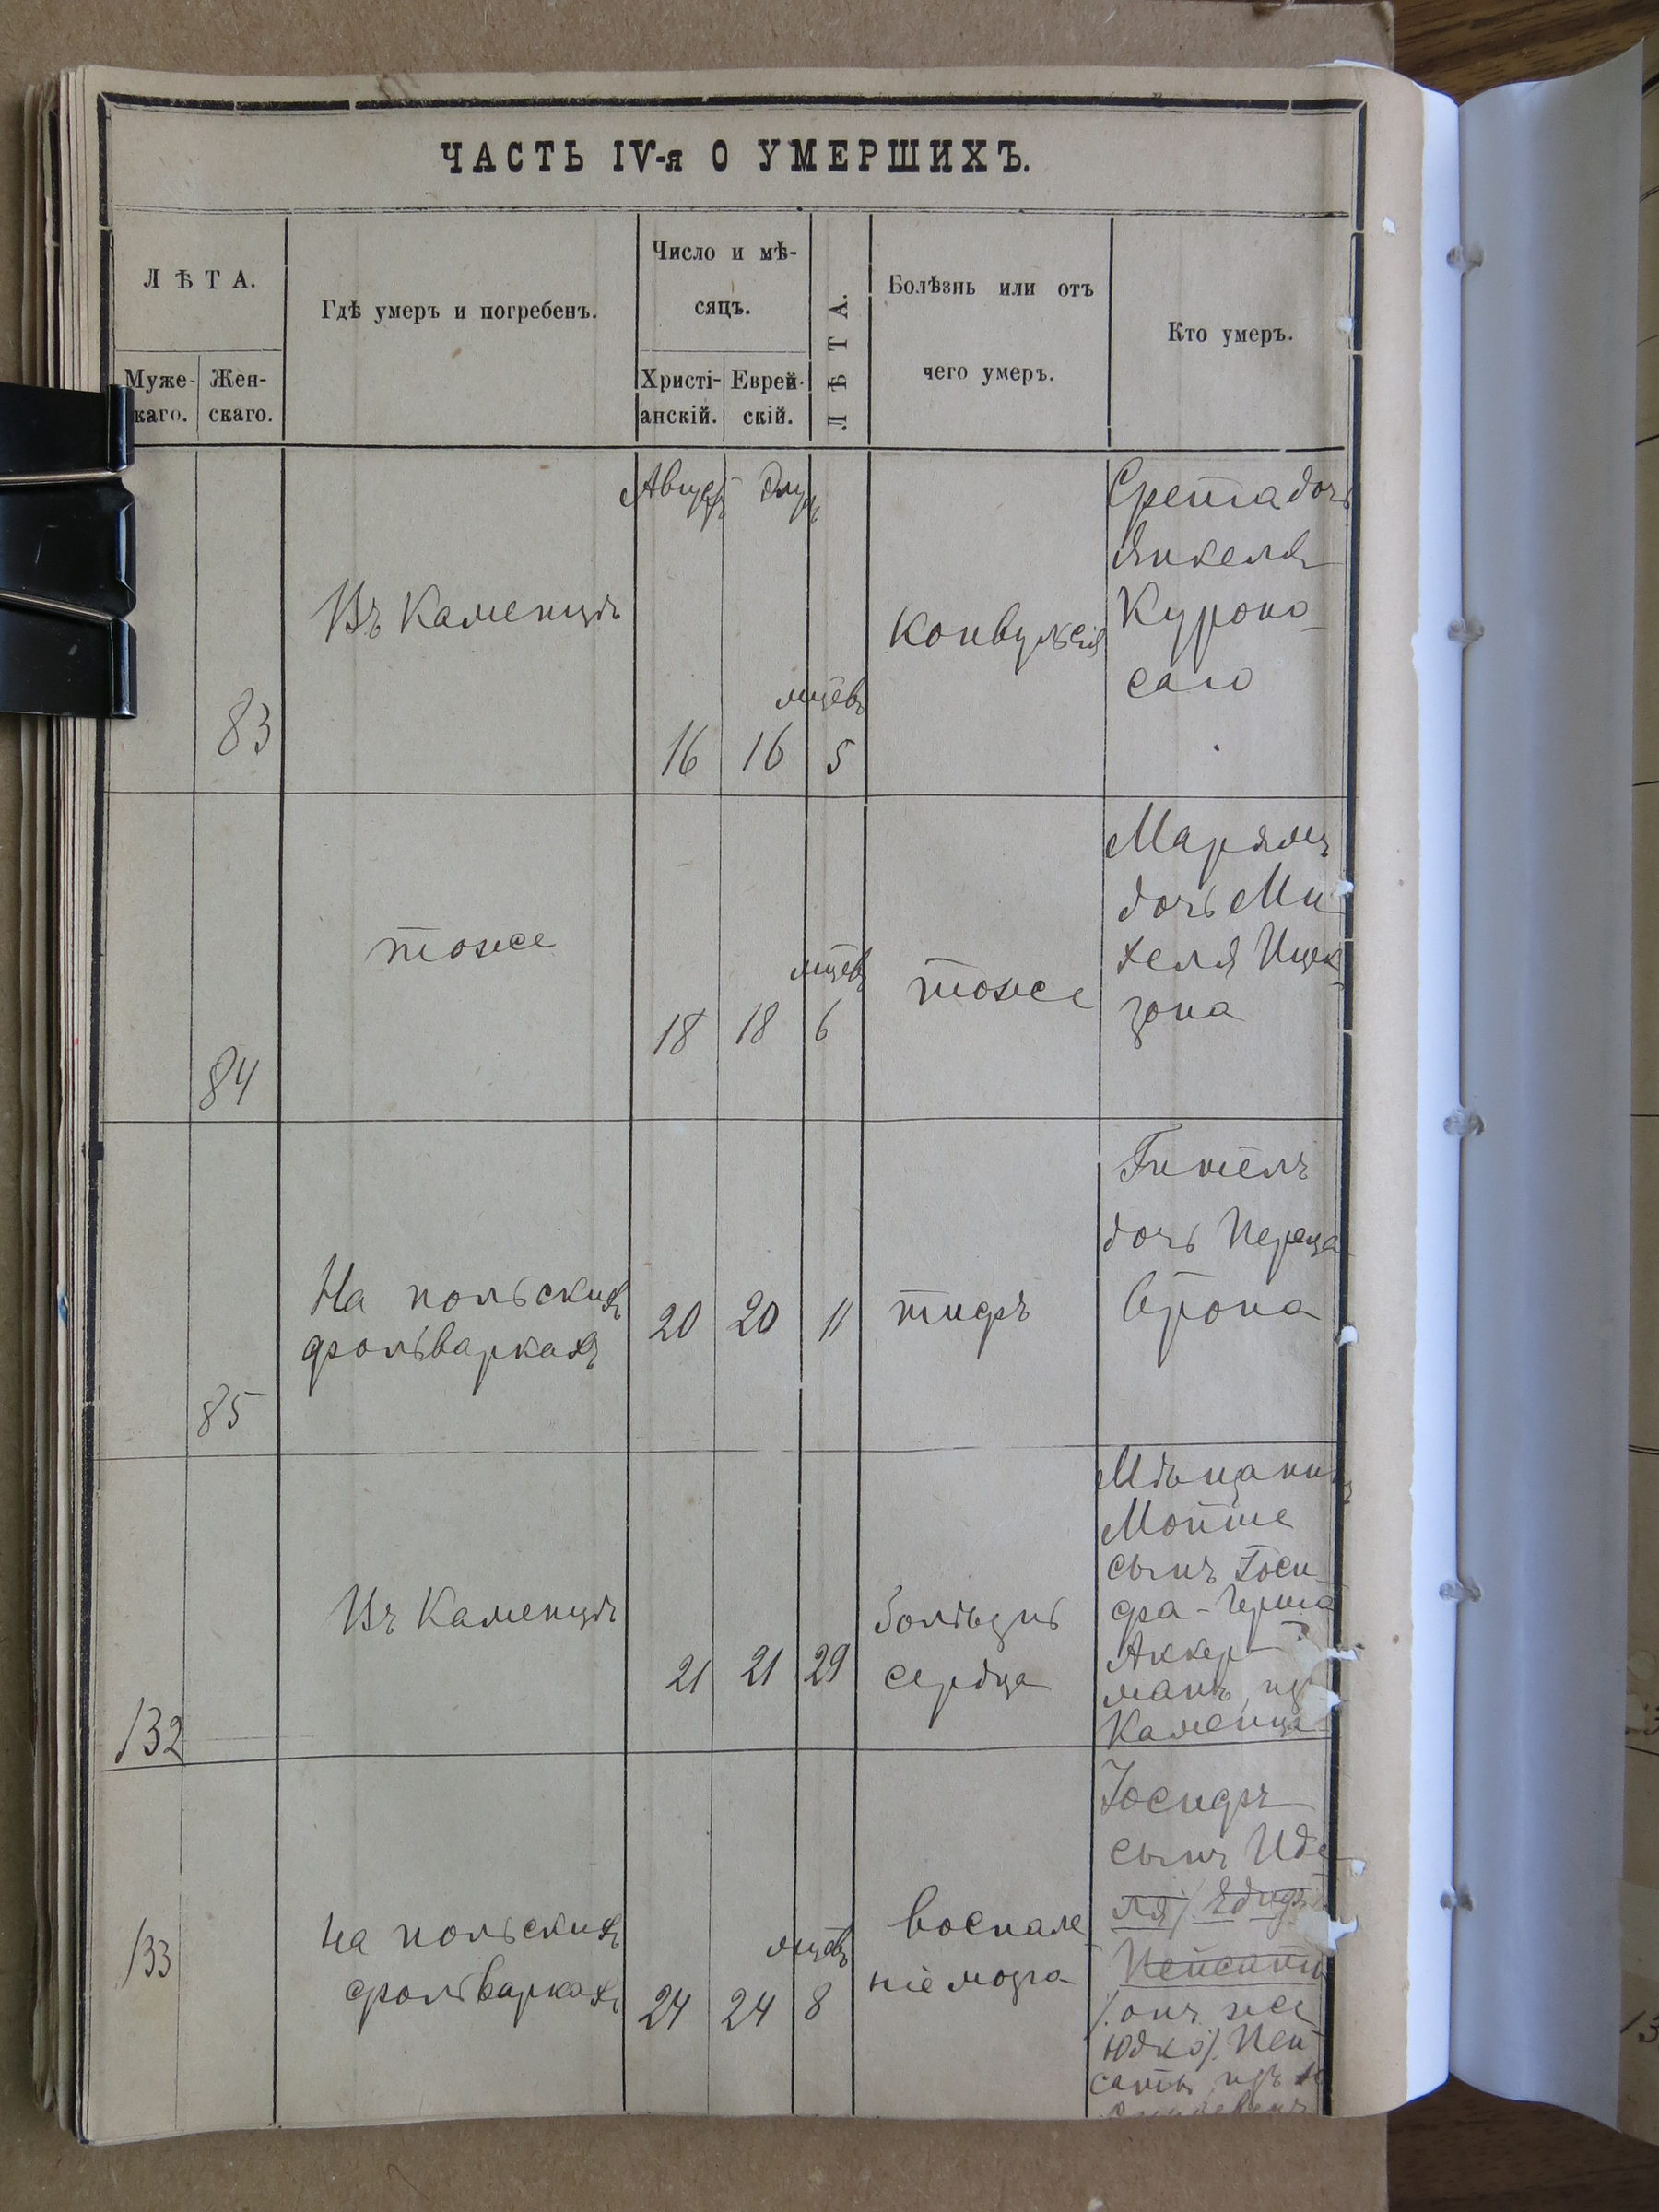 ЧАСТЬ IV-я О УМЕРШИХЪ.
ЛѢТА.
Муже-
каго.
Жен-
скаго.
Гдѣ умеръ и погребенъ.
Число и мѣ-
сяцъ.
Христі-
анскій.
Еврей-
скій.
ЛѢТА.
Болѣзнь или отъ
чего умеръ.
Кто умеръ.
83
Въ Каменцѣ
Августъ
16
16
мцевъ
5
Конвульсія
дочь
Янкеля
Куроно-
саго
84
тоже
18
18
мцевъ
6
тоже
Марямъ
дочь Ми
хеля Ицек
зона
85
На польскихъ
фольваркахъ
20
20
11
тифъ
Гитель
дочь Переца
132
Въ Каменцѣ
21
21
29
болѣзнь
сердца
Мѣщанинъ
Мотше
сынъ Госи
фа-Герша
Аккер-
манъ изъ
Каменца
133
на польскихъ
фольваркахъ
24
24
мцевъ
8
воспале
ніе мозга
Іосифъ
сынъ Иде
ля/
/.онъ же
Юдко/. Пей
сать изъ